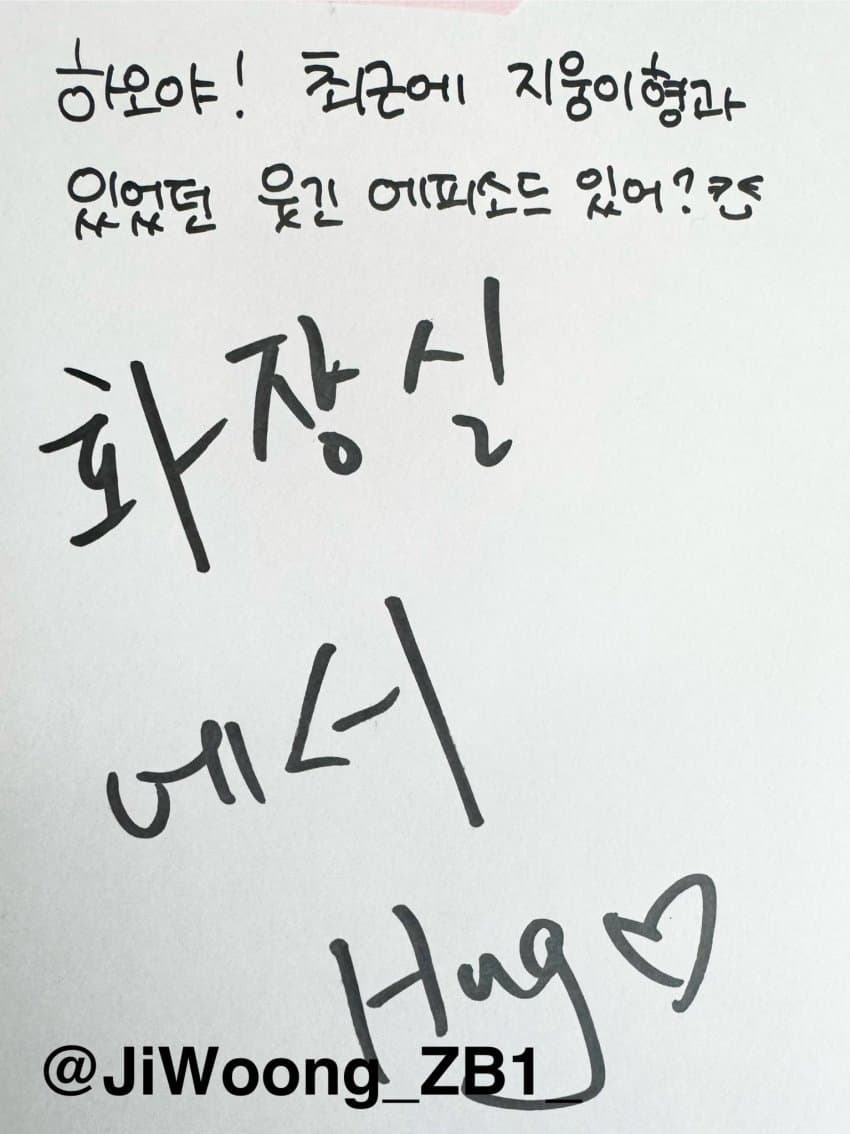 하오야! 최근에 지웅이형과
있었던 웃긴 에피소드 있어? ㅋㅋ
화장실
에서
Hug ♡
@JiWoong_ZB1_